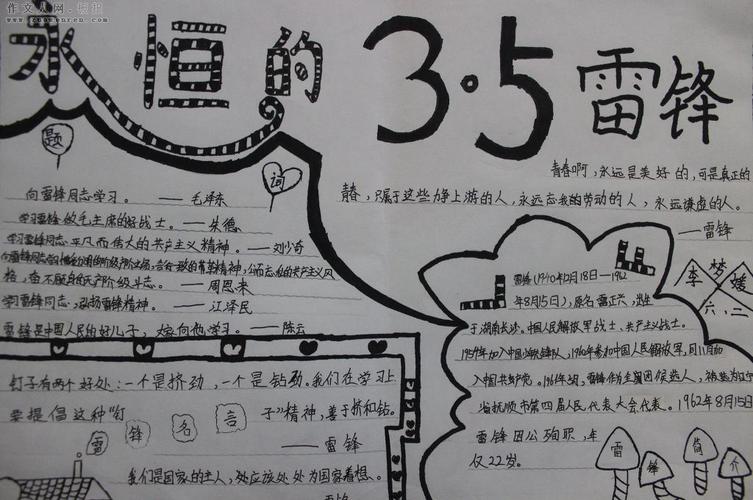 作文人网·板报
永恒的
3·5
雷锋
题
词
向雷锋同志学习。 ——毛泽东
学习雷锋做毛主席的好战士。——朱德
学习雷锋同志平凡而伟大的共产主义精神。——刘少奇
格,奋不顾身的无产阶级斗志。——周恩来
学习雷锋同志,弘扬雷锋精神。——江泽民
雷锋是中国人民的好儿子,大家向他学习。——陈云
青春啊,永远是美好的,可是真正的
青春,只属于这些力争上游的人,永远忘我的劳动的人,永远谦虚的人。
——雷锋
李梦媛
六、二
雷锋(1940年12月18日—1962
年8月15日),原名雷正兴,出生
于湖南长沙。中国人民解放军战士、共产主义战士。
1957年加入中国共青团,1960年参加中国人民解放军,同11月加
入中国共产党。
省抚顺市第四届人民代表大会代表。1962年8月15日
雷锋因公殉职,年
仅22岁。
雷锋简介
钉子有两个好处:一个是挤劲,一个是钻劲。我们在学习上
要提倡这种“钉子”精神,善于挤和钻。
——雷锋
雷锋名言
我们是国家的主人,处应该处处为国家着想。